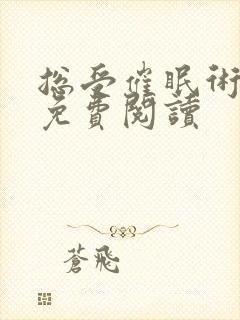 總受催眠術
免費閱讀
蒼飛